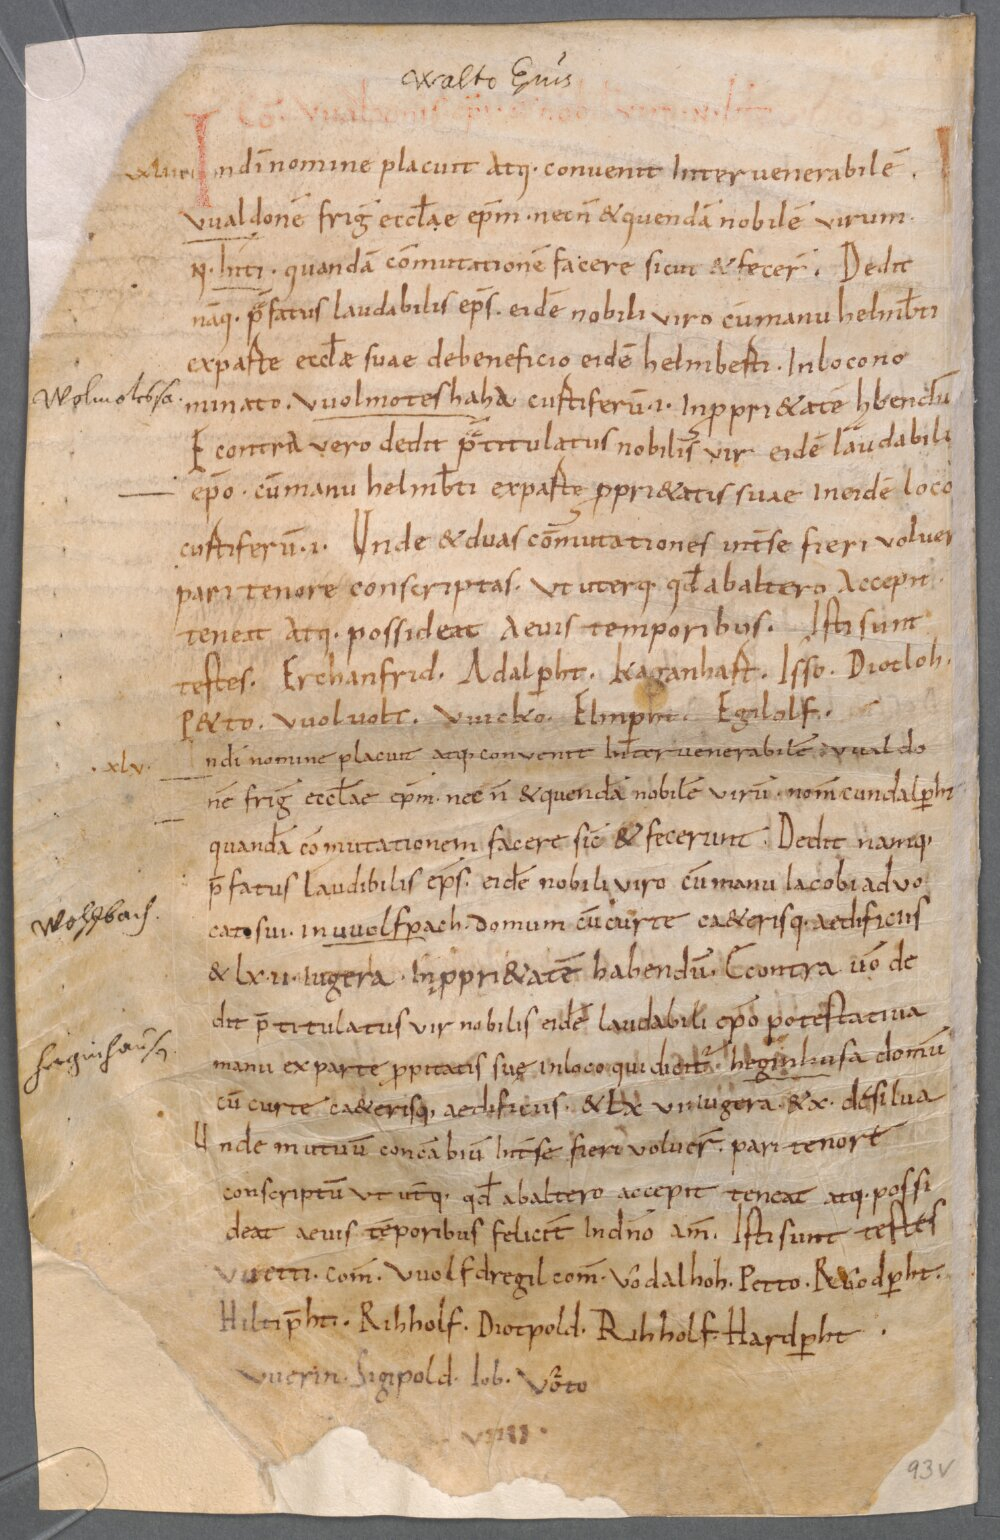 Walto Epūs
Cō Vualdonis ep̄i
xliiii In dī nomine placuit atq· convenit inter venerabilē
vualdonē frig̅ eccłae ep̅m · necn̄ & quendā nobilē virum
N· liuti · quandā cōmutationē facere sicut & fecer̄ · Dedit
nāq· p̄fatus laudabilis ep̄s · eidē nobili viro cū manu helmb̄ti
ex parte eccłæ suae de beneficio eidē helmberti · In loco no
Wolmotessa.
minato · vuolmoteshaha curtiferū · i · In ppri&atē hbendū
E contra vero dedit p̄titulatus nobilis vir eidē laudabili
ep̄o · cū manu helmb̄ti ex parte ppri&atis suae in eidē loco
curtiferū · i · Unde & duas cōmutationes int̄ se fieri voluer
pari tenore conscriptas · Ut uterq· qd̄ ab altero accepit ·
teneat atq· possideat aevis temporibus · Isti sunt
testes · Erchanfrid · Adalpht · Kaganhart · Isso · Diotloh ·
P&to · Vuoluolt · Vuicko · Elinpht · Egilolf ·
· xlv · In dī nomine placuit atq· convenit inter venerabilē vualdo
nē frig̅ eccłae ep̅m · nec n̄ & quendā nobilē virū · nom̄ cundalpht
quandā cōmutationem facere sic̄ & fecerunt · Dedit namq·
p̄fatus laudibilis ep̄s · eidē nobili viro cū manu Iacobi advo
Wolfbach.
cati sui · in vuolfpach · domum cū curte ca&erisq· aedificiis
& lx · ii · iugera · In ppri&atē habendū · Econtra v̄o de
dit p̄titulatus vir nobilis eidē laudabili ep̄o potestativa
heginhausn
manu ex parte ppitatis suę in loco qui dicit᷑ heginhusa domū
cū curte ca&erisq· aedificiis · & lx vii iugera · & x · de silva
Unde mutuū concābiū int̄ se fieri voluer̄ · pari tenore
conscriptū ut ut̄q· qd̄ ab altero accepit teneat atq· possi
deat aevis tēporibus felicit̄ In dn̄o am̄ · Isti sunt testes
Vuetti · com̄ · Vuolfdregil com̄ · Vōdalhoh · Petto · R&odpht ·
Hiltip̄ht · Rihholf · Diotpold · Rihholf · Hardpht ·
Vuerin · Sigipold · Iob · Vōto
viiii ·
93v